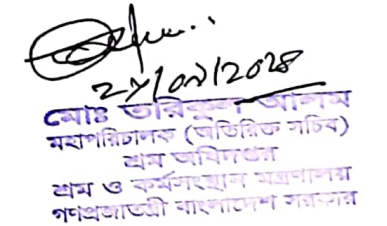 ২৮/০৯/২০২৪
মোঃ তরিকুল আলম
মহাপরিচালক (অতিরিক্ত সচিব)
শ্রম অধিদপ্তর
শ্রম ও কর্মসংস্থান মন্ত্রণালয়
গণপ্রজাতন্ত্রী বাংলাদেশ সরকার